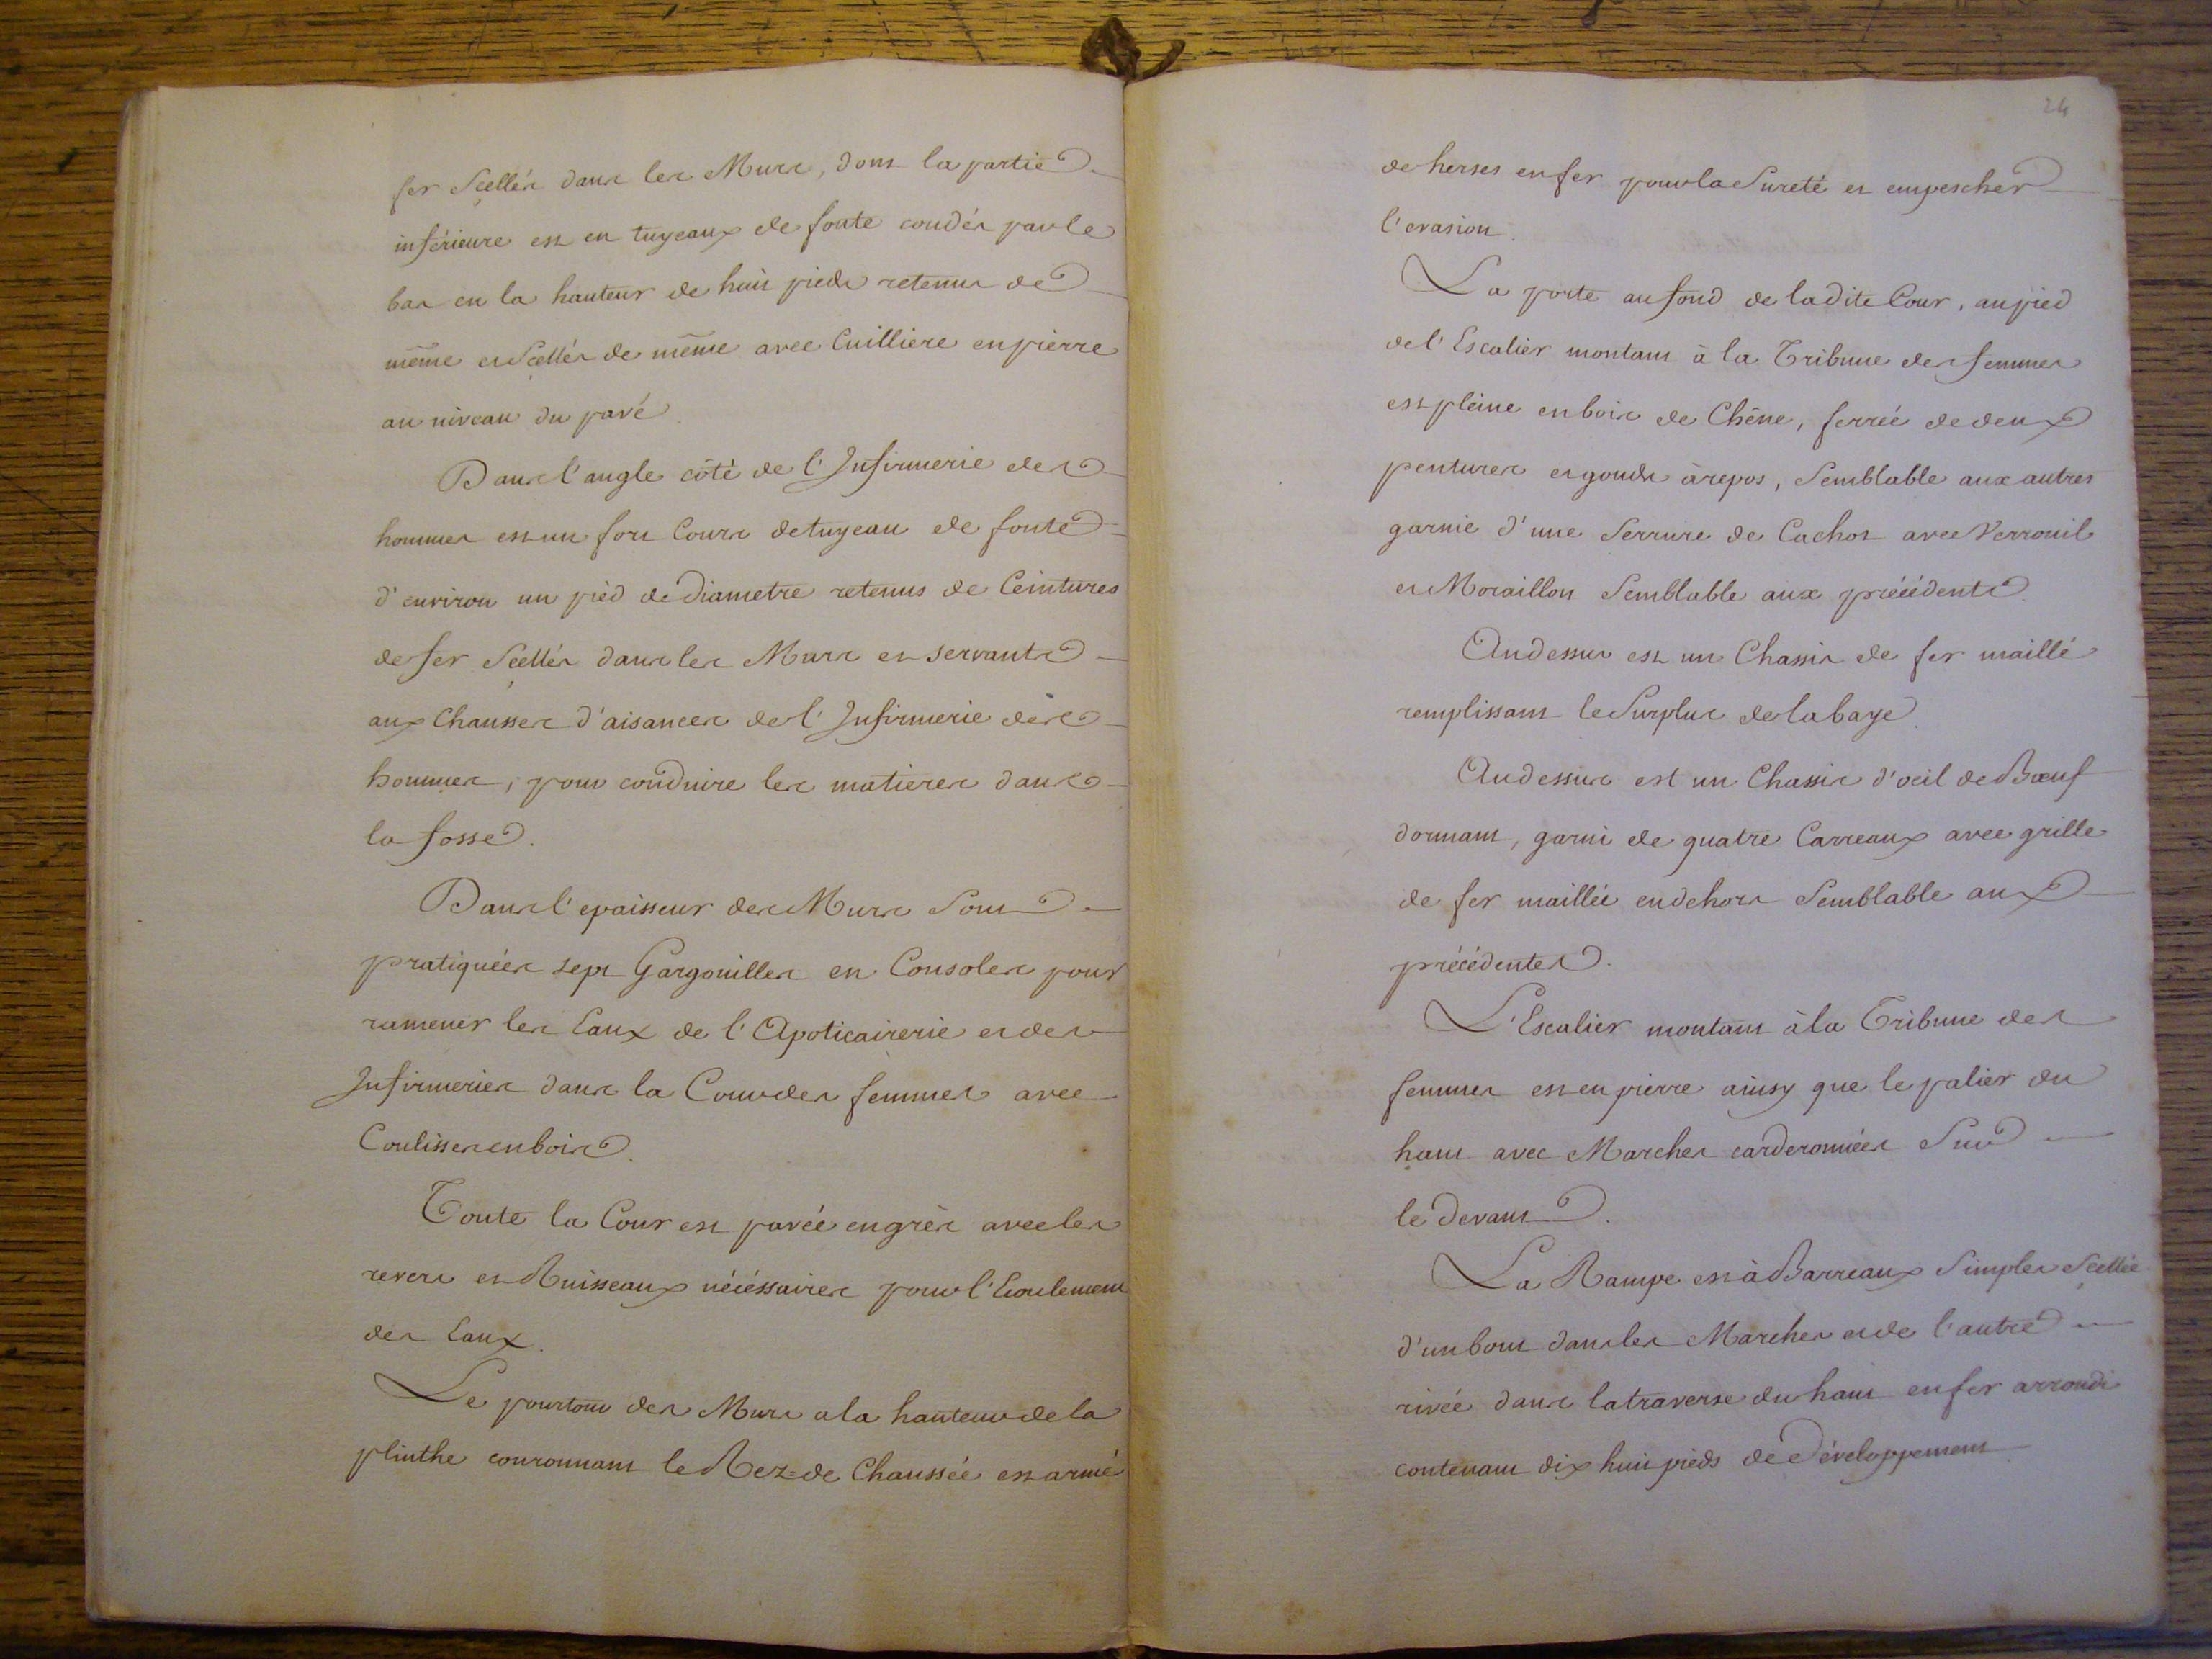 fer Scellés dans les Murs, dont la partie
inférieure est en tuyeaux de fonte coudés par le
bas en la hauteur de huit pieds retenus de
même et Scellés de même avec Cuilliere en pierre
au niveau du pavé.
Dans l'angle côté de l'Infirmerie des
hommes est un fort Cours de tuyeau de fonte
d'environ un pied de Diametre retenus de Ceintures
de fer Scellés dans les Murs et servants
aux Chausses d'aisances de l'Infirmerie des
hommes, pour conduire les matieres dans
la fosse.
Dans l'epaisseur des Murs Sont
pratiquées sept Gargouilles en Consoles pour
ramener les Eaux de l'Apoticairerie et des
Infirmeries dans la Cour des femmes avec
Coulisses en bois.
Toute la Cour est pavée en grès avec les
revers et Ruisseaux nécéssaires pour l'Ecoulement
des Eaux.
Le pourtour des Murs a la hauteur de la
plinthe couronnant le Rez=de Chaussée est armé
24
de herses en fer pour la Sureté et empescher
l'evasion.
La porte au fond de ladite Cour, au pied
de l'Escalier montant à la Tribune des femmes
est pleine en bois de Chêne, ferrée de deux
pentures et gonds à repos, Semblable aux autres
garnie d'une Serrure de Cachot avec Verrouil
et Moraillon Semblable aux précédents.
Audessus est un Chassis de fer maillé
remplissant le Surplus de la baye.
Audessus est un Chassis d'oeil de Bœuf
dormant, garni de quatre Carreaux avec grille
de fer maillée en dehors Semblable aux
précédentes.
L'Escalier montant à la Tribune des
femmes est en pierre ainsy que le palier du
haut avec Marches carderonnées Sur
le devant.
La Rampe est à Barreaux Simples Scellée
d'un bout dans les Marches et de l'autre
rivée dans la traverse du haut en fer arrondi
contenant dix huit pieds de Développement